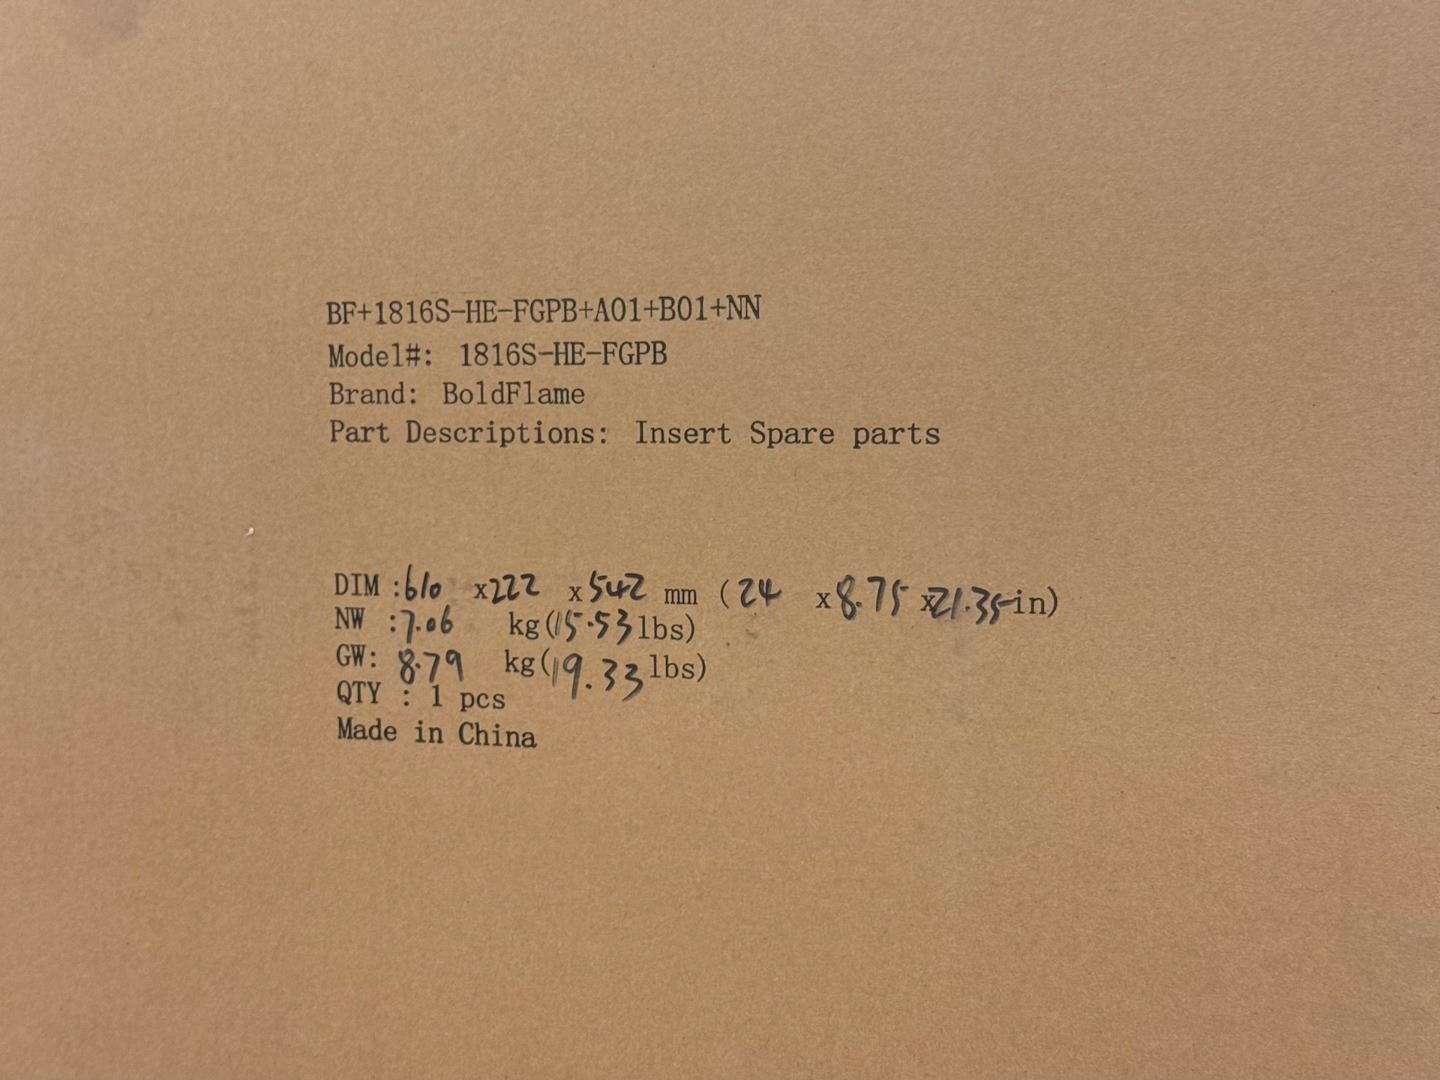 BF+1816S-HE-FGPB+A01+B01+NN
Model#: 1816S-HE-FGPB
Brand: BoldFlame
Part Descriptions: Insert Spare parts
DIM :610 x222 x542 mm (24 x8.75 x21.35in)
NW :7.06 kg(15.53lbs)
GW: 8.79 kg(19.33lbs)
QTY : 1 pcs
Made in China